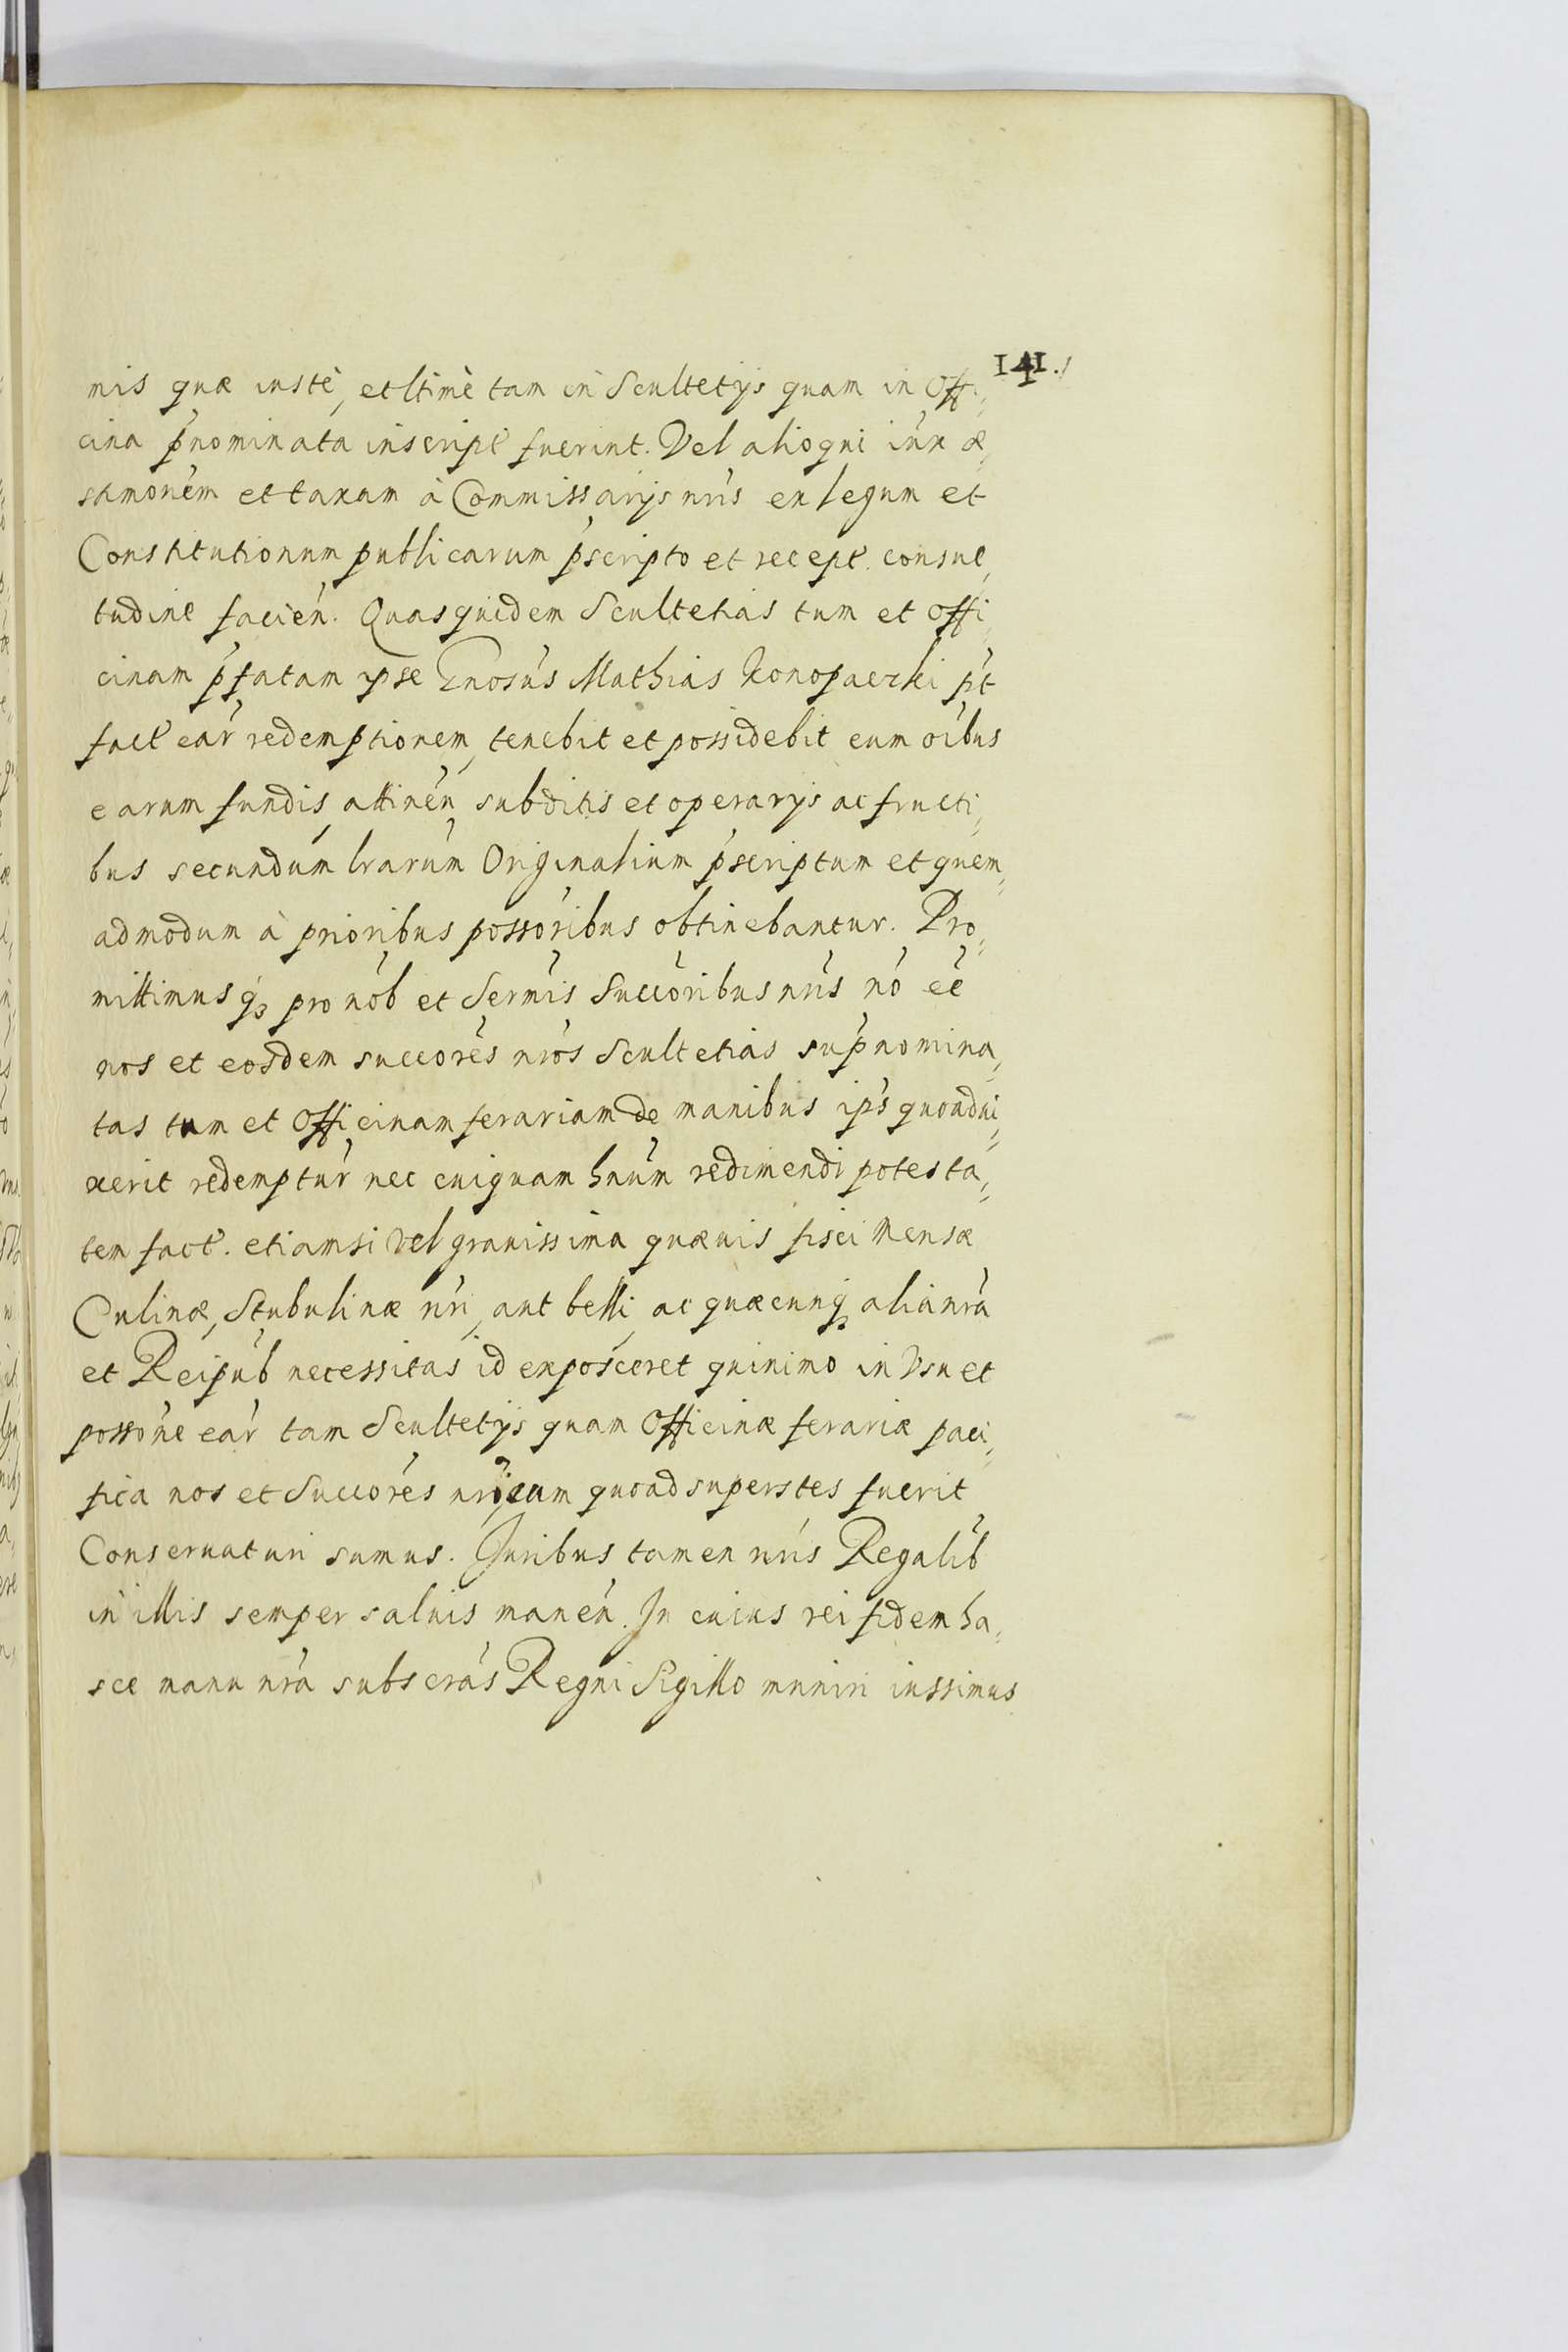 141.
mis quæ iustè, et ltimè tam in Scultetijs quam in Offi,
cina p̃nominata inscript̃ fuerint. Vel alioqui iux̃ æ,
stimoñem et taxam à Commissarijs nr̃is ex legum et
Constitutionum publicarum p̃scripto et recept̃. consue,
tudine facień. Quasquidem Scultetias tum et offi,
cinam p̃fatam ipse Gnosus Mathias Konopaczki p̃t
fact̃ ear̃ redemptionem, tenebit et possidebit cum oĩbus
earum fundis, attineñ, subditis et operarijs ac fructi,
bus secundum lr̃arum Originalium p̃scriptum et quem,
admodum à prioribus posso̴ribus obtinebantur. Pro,
mittimus q̃ȝ pro nob̃ et Serm̃is Succõribus nr̃is nõ eẽ
nos et eosdem succorẽs nr̃os Scultetias sup̃nomina,
tas tum et Officinam ferariam de manibus ip̃s quoad vi,
xerit redemptur̃ nec cuiquam hñum redimendi potesta,
tem fact̃. etiamsi vel grauissima quæuis fisci Mensæ
Culinæ, Stubulinæ nr̃i, aut belli, ac quæcunq̃ȝ alia nr̃a
et Reipub̃ necessitas id exposceret quinimo in Vsu et
possõne ear̃ tam Scultetijs quam Officinæ ferariæ paci,
fica nos et Succorẽs nr̃i, eum quoad superstes fuerit
Conseruaturi sumus. Juribus tamen nr̃is Regalib̃
in illis semper saluis maneñ. In cuius rei fidem ha,
sce manu nr̃a subscrãs Regni Sigillo muniri iussimus